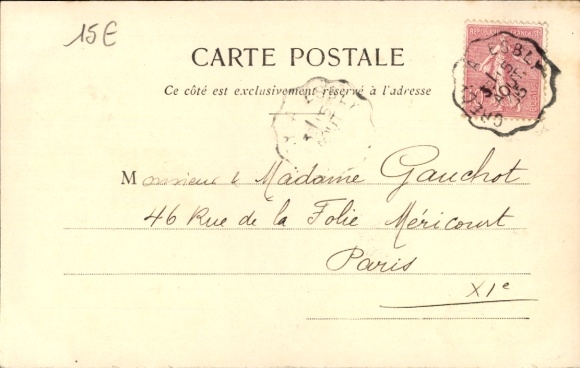 15E
CARTE POSTALE
Ce côté est exclusivement réservé à l'adresse
REPUBLIQUE FRANÇAISE
A ESBLY
ESBLY
Monsieur & Madame Gauchot
46 Rue de la Folie Méricourt
Paris
XIe